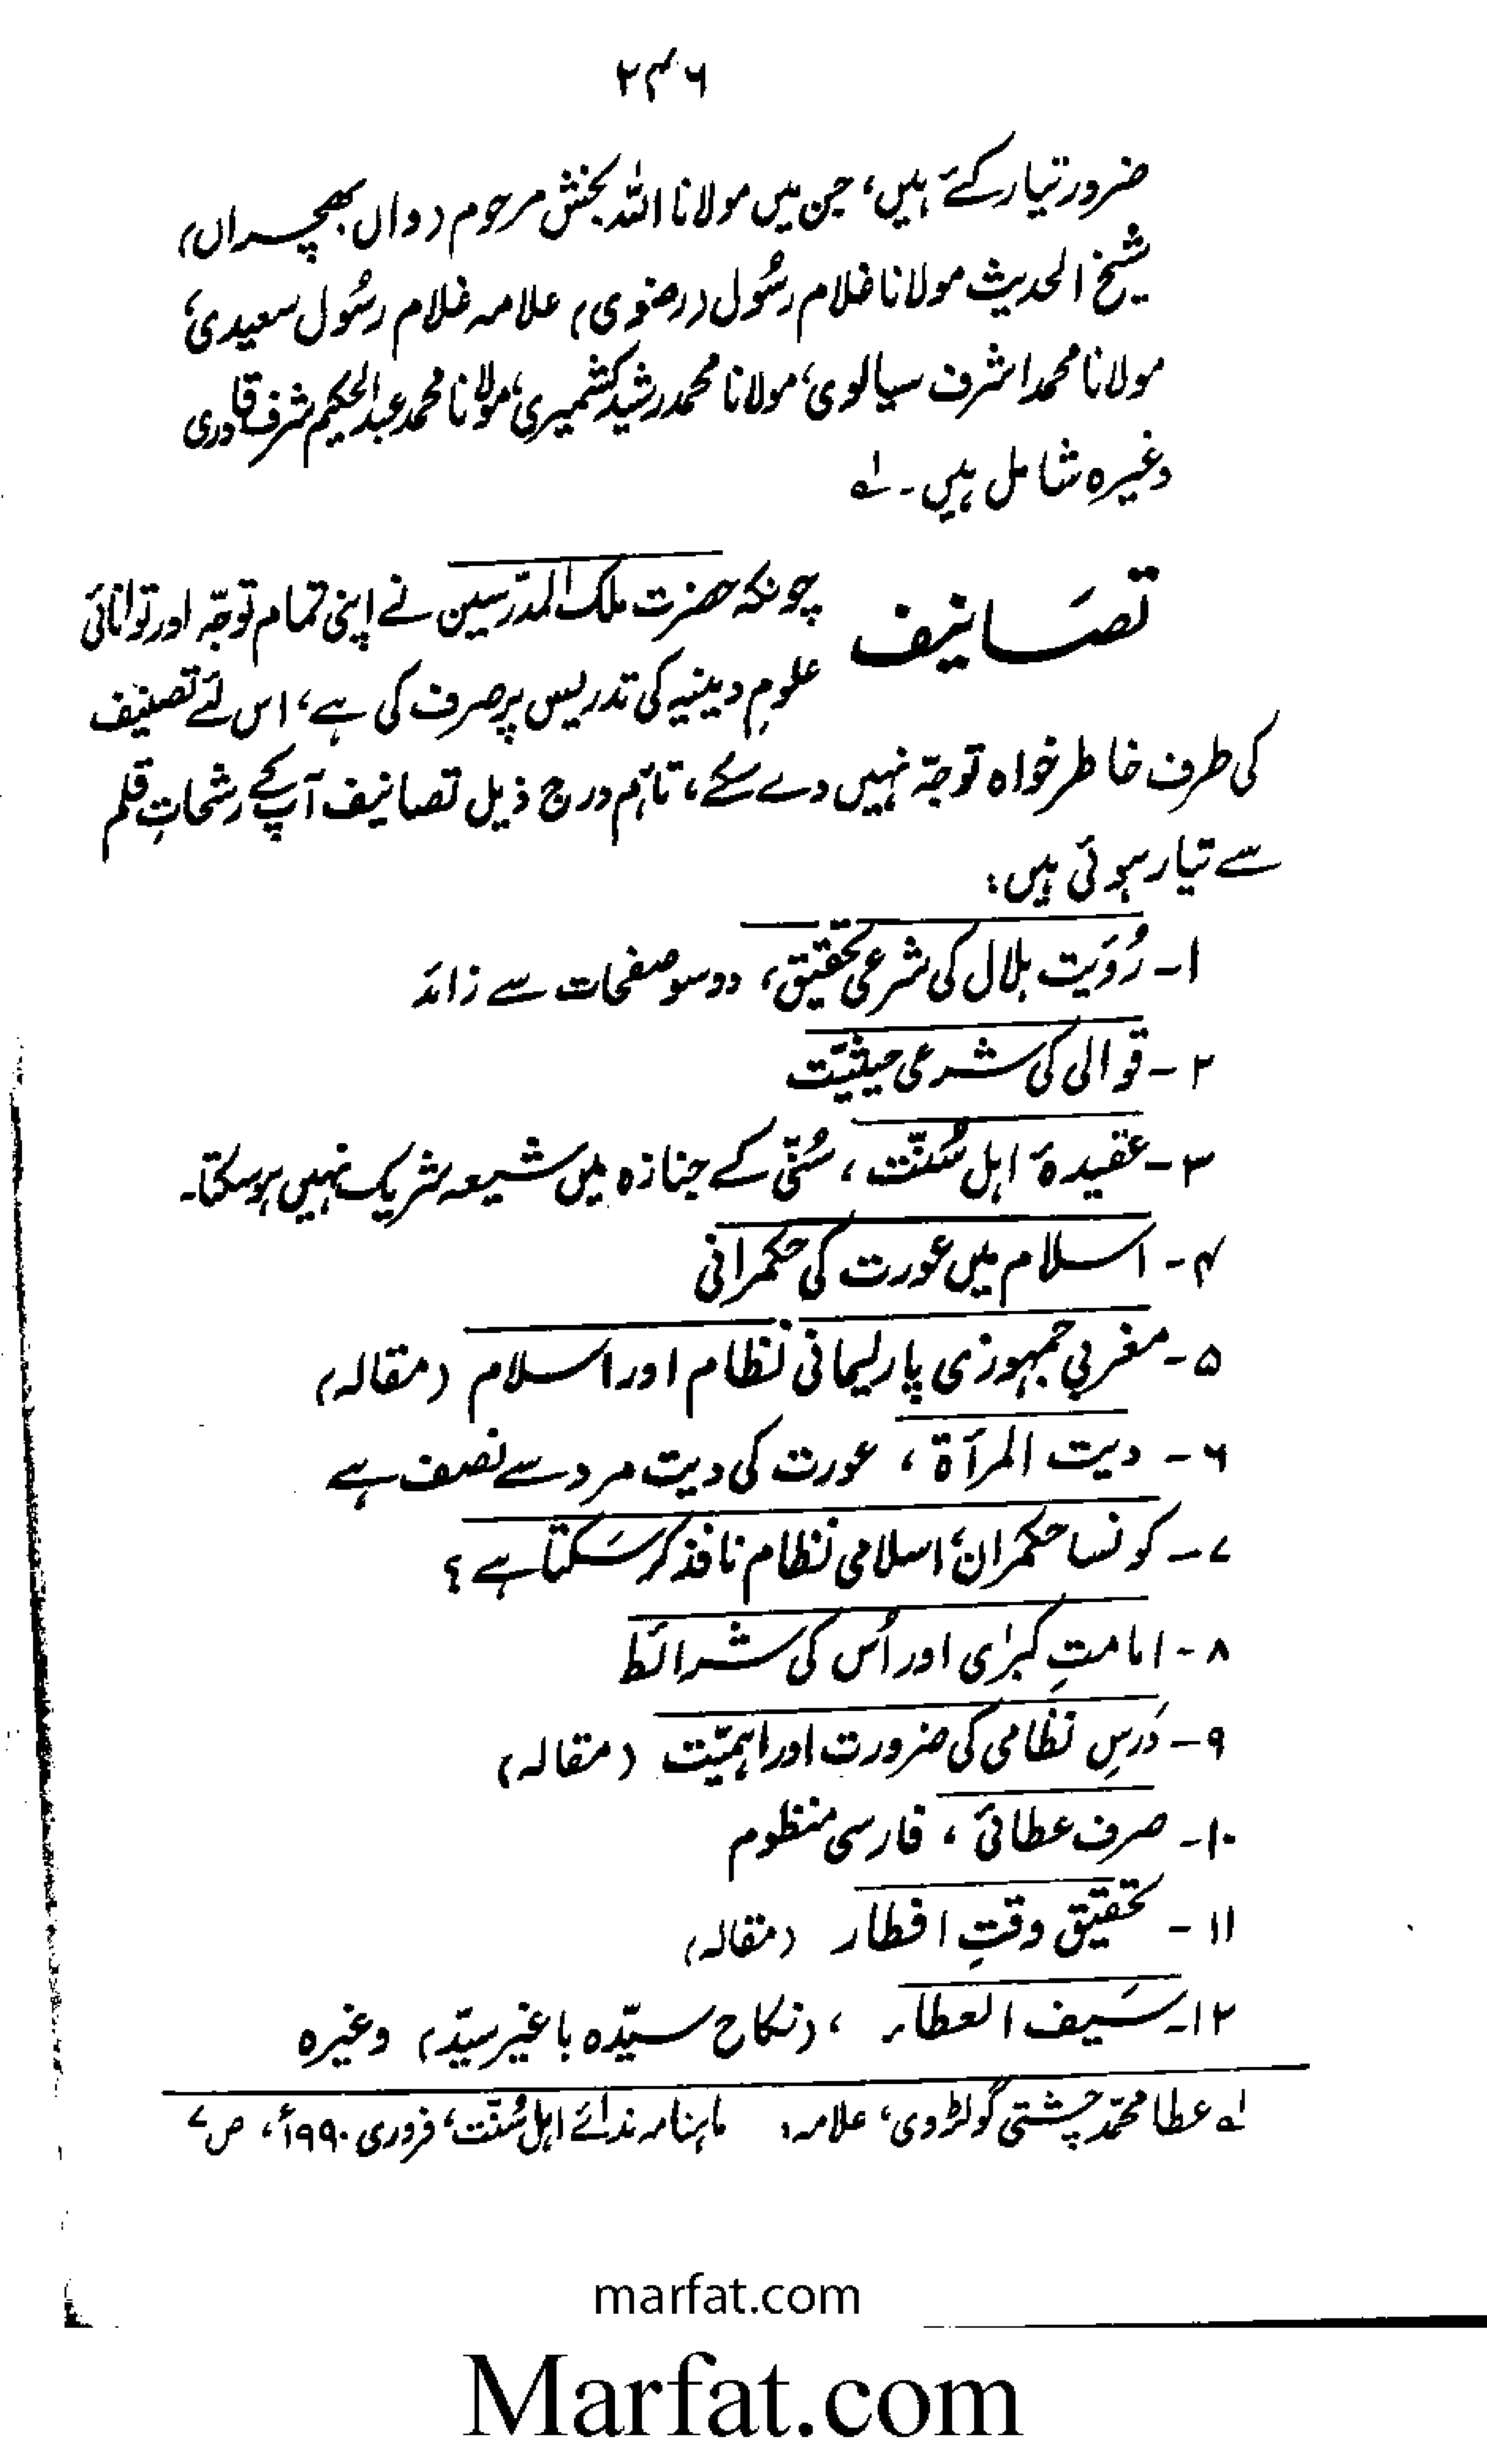 ۲۴۶
ضرور تیار کئے ہیں، جن میں مولانا اللہ بخش مرحوم (واں بھچراں)
شیخ الحدیث مولانا غلام رسُول (رضوی) علامہ غلام رسُول سعیدی،
مولانا محمد اشرف سیالوی، مولانا محمد رشید کشمیری، مولانا محمد عبدالحکیم شرف قادری
وغیرہ شامل ہیں۔ لہ
تصَانیف
چونکہ حضرت ملک المدرّسین نے اپنی تمام توجّہ اور توانائی
علومِ دینیہ کی تدریس پر صرف کی ہے، اس لئے تصنیف
کی طرف خاطر خواہ توجّہ نہیں دے سکے، تاہم درج ذیل تصانیف آپ کے رشحاتِ قلم
سے تیار ہوئی ہیں:
۱۔ رُؤیت ہلال کی شرعی تحقیق، دو سو صفحات سے زائد
۲۔ قوالی کی شرعی حیثیّت
۳۔ عقیدۂ اہل سُنّت، سُنّی کے جنازہ میں شیعہ شریک نہیں ہوسکتا۔
۴۔ اسلام میں عورت کی حکمرانی
۵۔ مغربی جمہوری پارلیمانی نظام اور اسلام (مقالہ)
۶۔ دیت المرأۃ، عورت کی دیت مرد سے نصف ہے
۷۔ کونسا حکمران، اسلامی نظام نافذ کر سَکتا ہے؟
۸۔ امامتِ کبرٰی اور اُس کی شرائط
۹۔ دَرسِ نظامی کی ضرورت اور اہمیّت (مقالہ)
۱۰۔ صرف عطائی، فارسی منظوم
۱۱۔ تحقیق وقتِ افطار (مقالہ)
۱۲۔ سَیف العطاء، (نکاح سیّدہ با غیر سیّد) وغیرہ
لہ عطا محمّد چشتی گولڑوی، علامہ: ماہنامہ ندائے اہل سُنّت، فروری ۱۹۹۰ء، ص ۷
marfat.com
Marfat.com